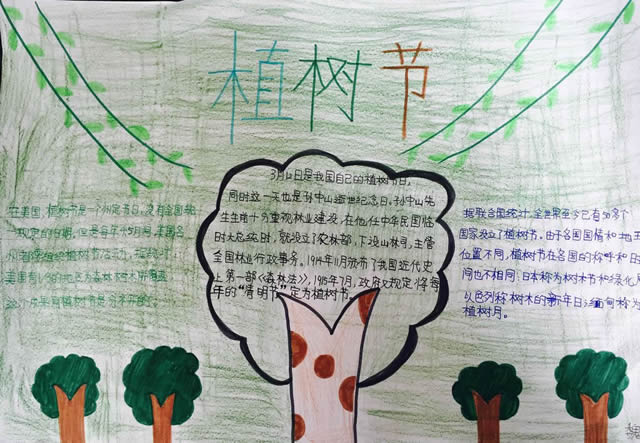 植树节
在美国,植树节是一个州定节日,没有全国统一
规定的日期。但是每年4月间,美国各
州都要组织植树节活动。
美国有1/3的地区为森林树木所覆盖
3月12日是我国自己的植树节日,
同时这一天也是孙中山逝世纪念日。孙中山先
生生前十分重视林业建设,在他任中华民国临
时大总统时,就设立了农林部,下设山林司,主管
全国林业行政事务。1914年11月颁布了我国近代史
上第一部《森林法》,1915年7月,政府又规定将每
年的“清明节”定为植树节。
据联合国统计,全世界至今已有50多个
国家设立了植树节。由于各国国情和地理
位置不同,植树节在各国的称呼和时
间也不相同:日本称为树木节和绿化周
以色列称树木的新年日;缅甸称为
植树月。